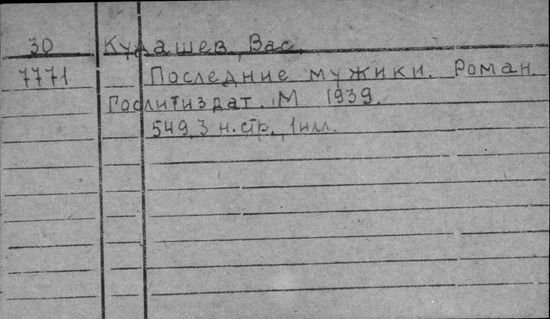 30 Кудашев, Вас.
7771 Последние мужики. Роман.
Гослитиздат. М 1939.
549, 3 н.стр., 1 илл.